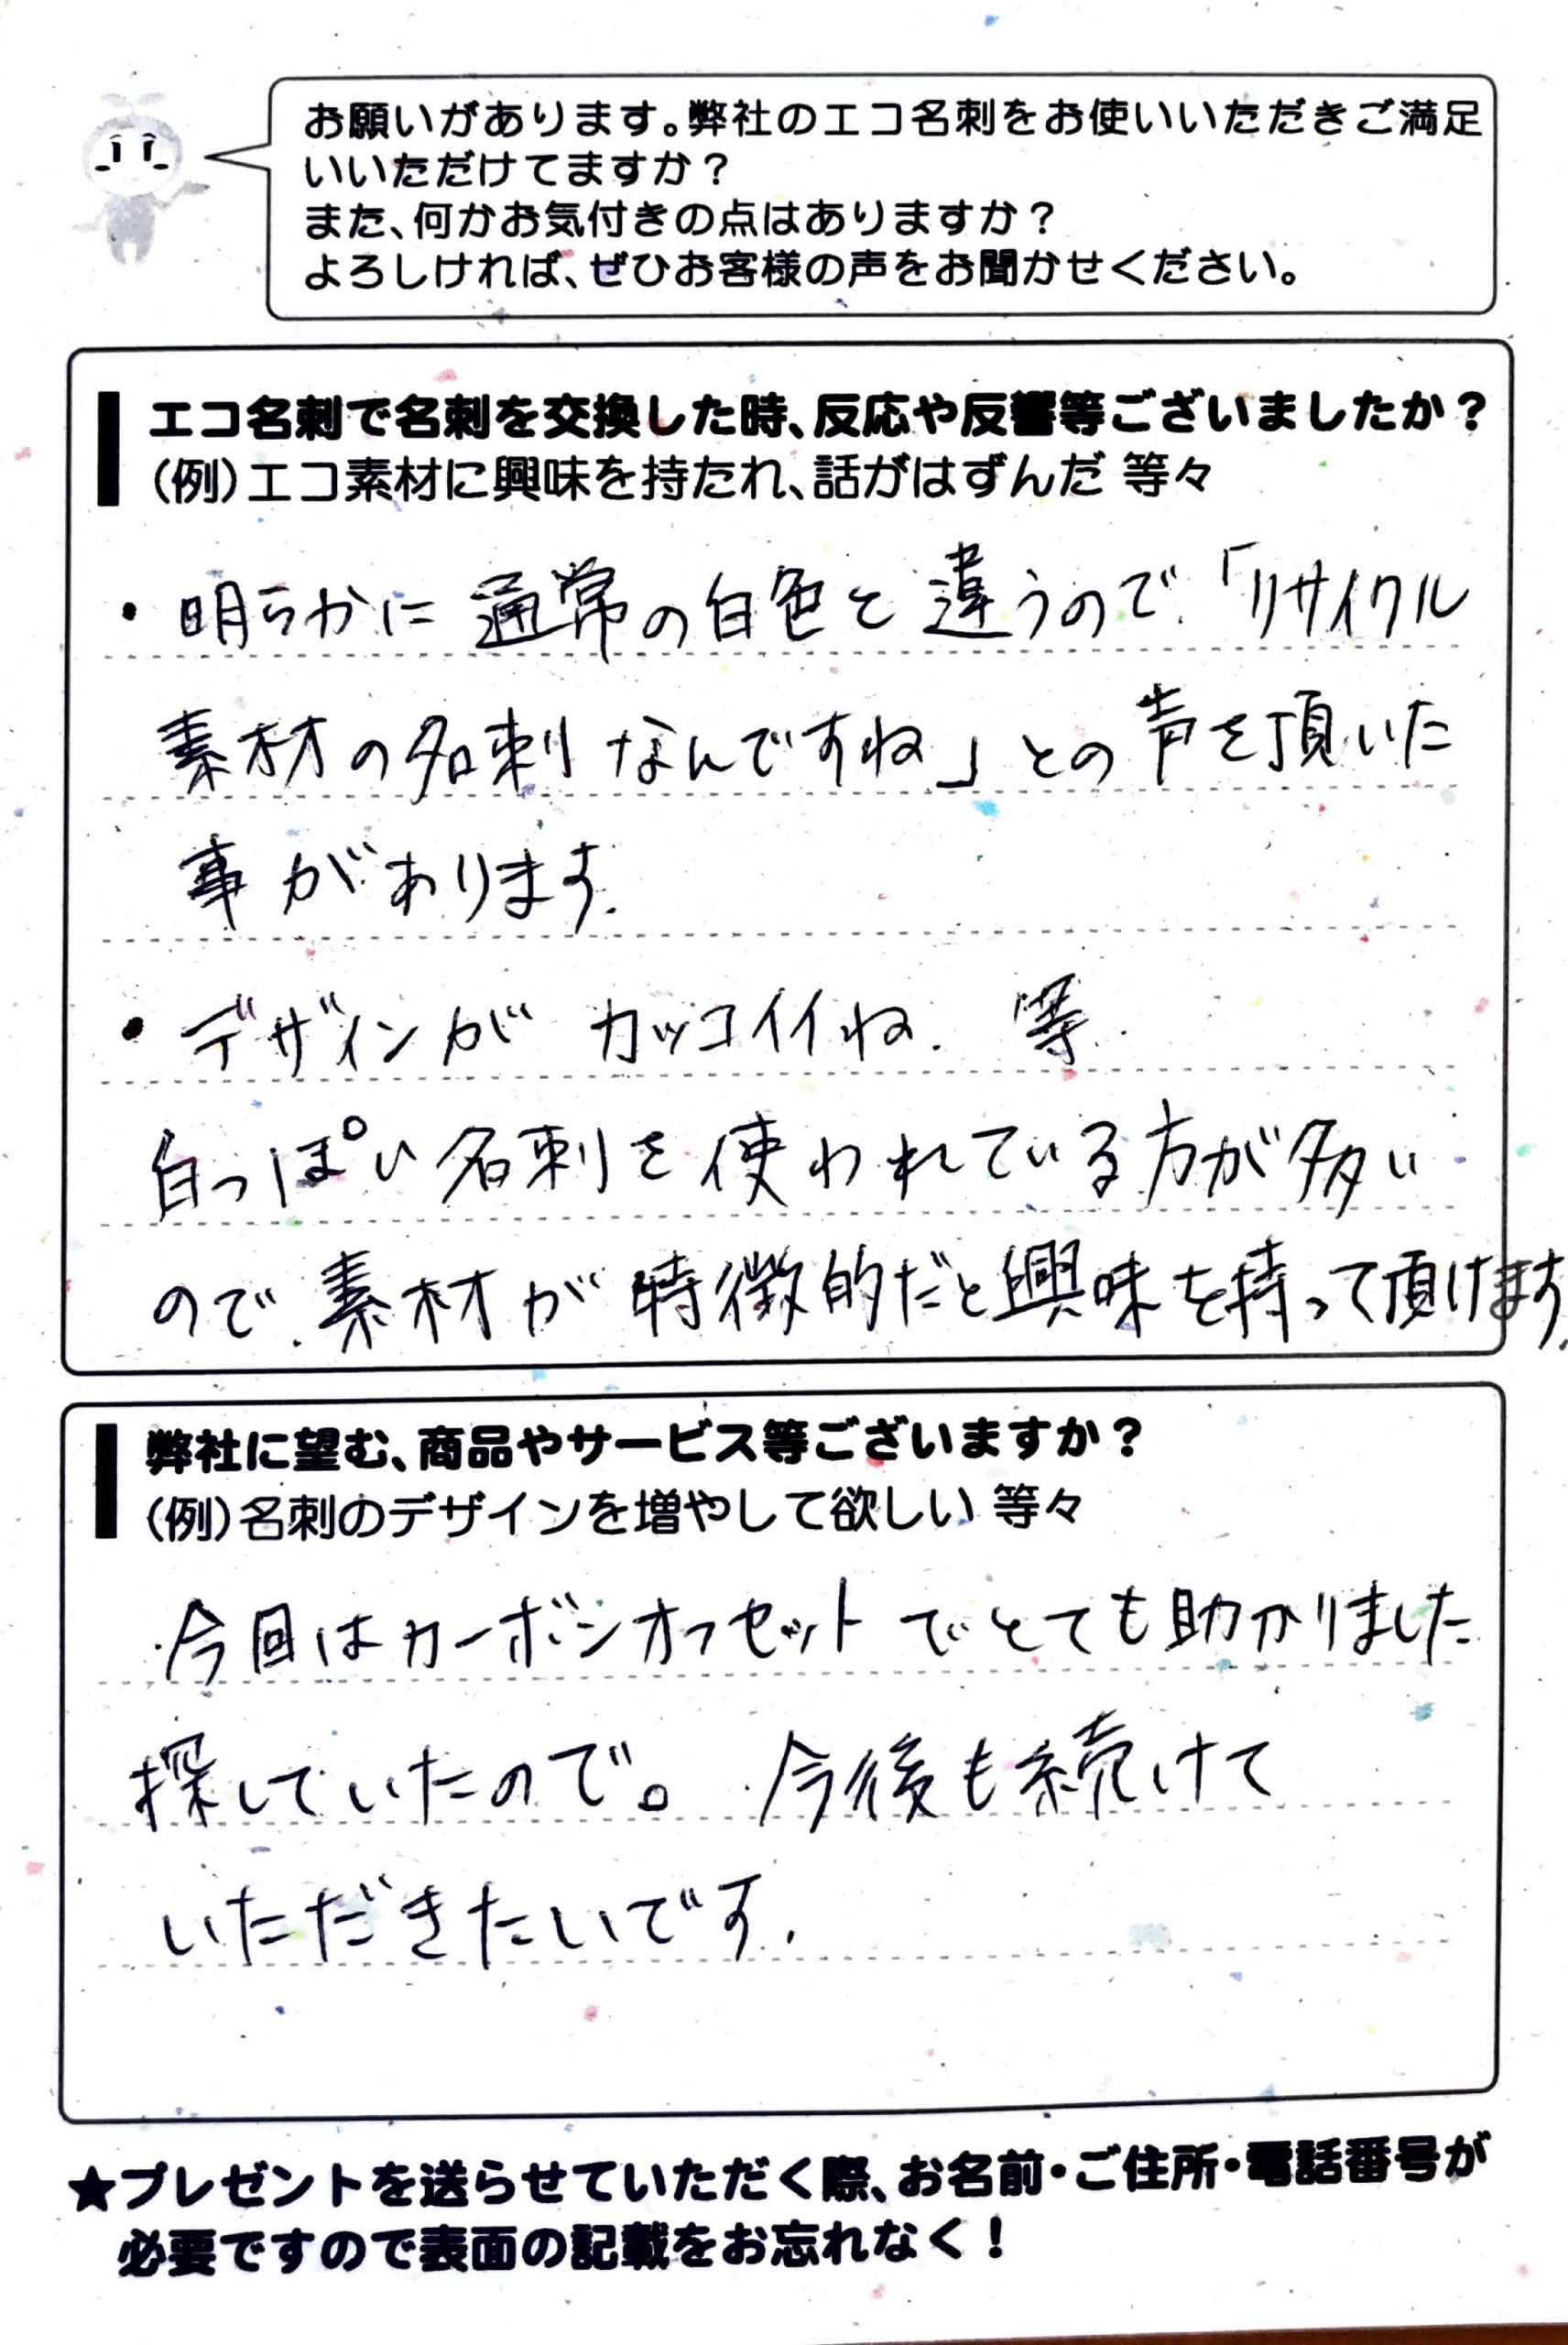 お願いがあります。弊社のエコ名刺をお使いいただきご満足
いいただけてますか？
また、何かお気付きの点はありますか？
よろしければ、ぜひお客様の声をお聞かせください。
エコ名刺で名刺を交換した時、反応や反響等ございましたか？
（例）エコ素材に興味を持たれ、話がはずんだ 等々
・明らかに通常の白色と違うので、「リサイクル
素材の名刺なんですね」との声を頂いた
事があります。
・デザインがカッコイイね. 等.
白っぽい名刺を使われている方が多い
ので、素材が特徴的だと興味を持って頂けます.
弊社に望む、商品やサービス等ございますか？
（例）名刺のデザインを増やして欲しい 等々
・今回はカーボンオフセットでとても助かりました
探していたので。 今後も続けて
いただきたいです.
★プレゼントを送らせていただく際、お名前・ご住所・電話番号が
必要ですので表面の記載をお忘れなく！